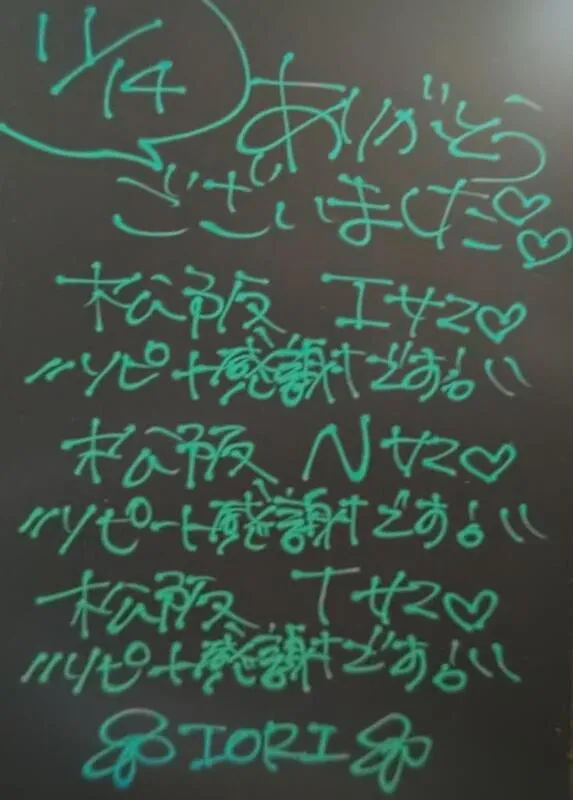 11/14
ありがとう
ございました♡♡
松阪 Iサマ♡
〃リピート感謝です!〃
松阪 Nサマ♡
〃リピート感謝です!〃
松阪 Tサマ♡
〃リピート感謝です!〃
IORI